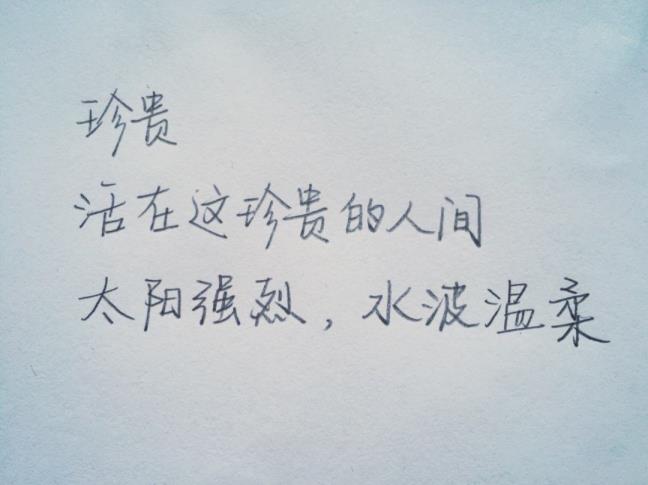 珍贵
活在这珍贵的人间
太阳强烈，水波温柔